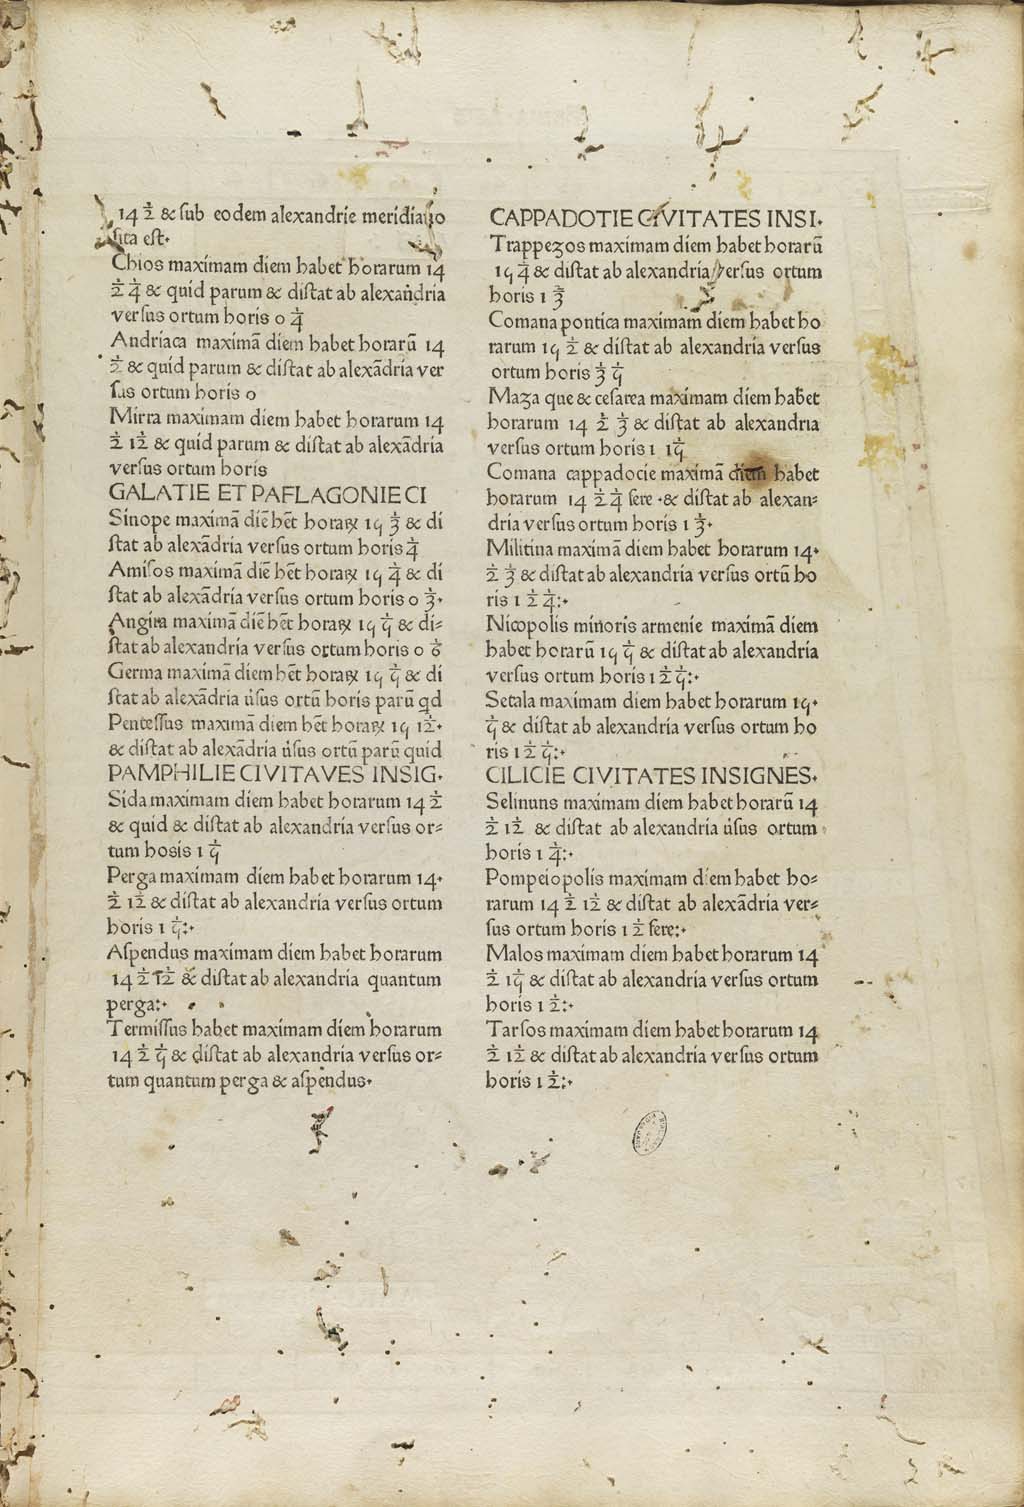 14 ½ & sub eodem alexandrie meridiano
sita est·
Chios maximam diem habet horarum 14
½ ¼ & quid parum & distat ab alexandria
versus ortum horis o ¼
Andriaca maximā diem habet horarū 14
½ & quid parum & distat ab alexādria ver
sus ortum horis o
Mirra maximam diem habet horarum 14
½ 1½ & quid parum & distat ab alexādria
versus ortum horis
GALATIE ET PAFLAGONIE CI
Sinope maximā diē hēt horaꝝ 15 ⅓ & di
stat ab alexādria versus ortum horis ¼
Amisos maximā diē hēt horaꝝ 15 ¼ & di
stat ab alexādria versus ortum horis o ⅓·
Angira maximā diē hēt horaꝝ 15 ⅕ & di=
stat ab alexādria versus ortum horis o ⅙
Germa maximā diem hēt horaꝝ 15 ⅕ & di
stat ab alexādria u̇sus ortū horis parū qd
Pentessus maximā diem hēt horaꝝ 15 1½·
& distat ab alexādria u̇sus ortū parū quid
PAMPHILIE CIVITAVES INSIG·
Sida maximam diem habet horarum 14 ½
& quid & distat ab alexandria versus or=
tum hosis 1 ⅕
Perga maximam diem habet horarum 14·
½ 1½ & distat ab alexandria versus ortum
horis 1 ⅕:·
Aspendus maximam diem habet horarum
14 ½ 1½ & distat ab alexandria quantum
perga:·
Termissus habet maximam diem horarum
14 ½ ⅕ & distat ab alexandria versus or=
tum quantum perga & aspendus·
CAPPADOTIE CIVITATES INSI·
Trappezos maximam diem habet horarū
15 ¼ & distat ab alexandria versus ortum
horis 1 ⅔
Comana pontica maximam diem habet ho
rarum 15 ½ & distat ab alexandria versus
ortum horis ⅓ ⅕
Maza que & cesarea maximam diem habet
horarum 14 ½ ⅓ & distat ab alexandria
versus ortum horis 1 1⅕
Comana cappadocie maximā diem habet
horarum 14 ½ ¼ fere ·& distat ab alexan=
dria versus ortum horis 1 ⅓·
Militina maximā diem habet horarum 14·
½ ⅓ & distat ab alexandria versus ortū ho
ris 1 ½ ¼:·
Nicopolis minoris armenie maximā diem
habet horarū 15 ⅕ & distat ab alexandria
versus ortum horis 1 ½ ⅕:·
Setala maximam diem habet horarum 15·
⅕ & distat ab alexandria versus ortum ho
ris 1 ½ ⅕:·
CILICIE CIVITATES INSIGNES·
Selinuns maximam diem habet horarū 14
½ 1½ & distat ab alexandria u̇sus ortum
horis 1 ¼:·
Pompeiopolis maximam diem habet ho=
rarum 14 ½ 1½ & distat ab alexādria ver=
sus ortum horis 1 ½ fere:·
Malos maximam diem habet horarum 14
½ 1⅕ & distat ab alexandria versus ortum
horis 1 ½:·
Tarsos maximam diem habet horarum 14
½ 1½ & distat ab alexandria versus ortum
horis 1 ½:·